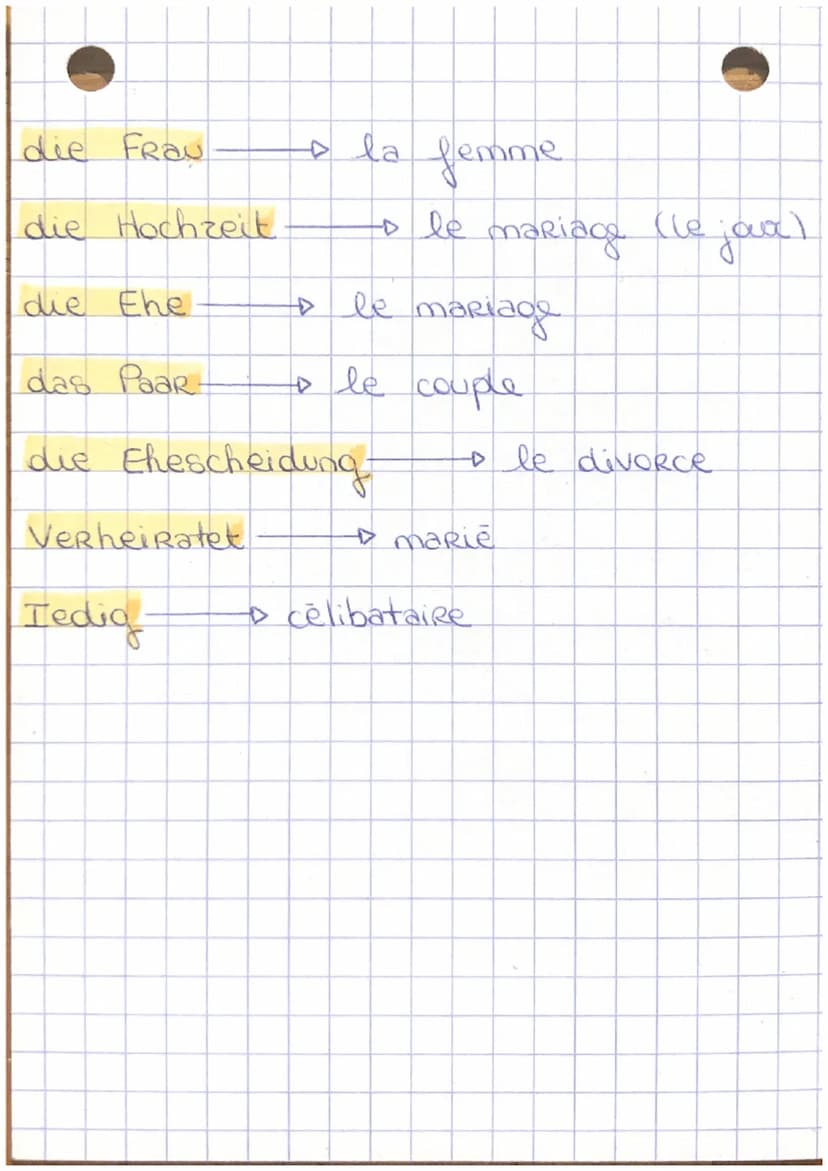 die Frau → la femme
die Hochzeit → le mariage (le jaa)
die Ehe → le mariage
das Paar → le couple
die Ehescheidung → le divorce
Verheiratet → marié
Iedig → célibataire